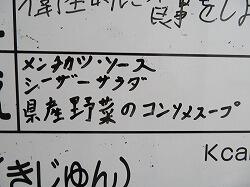 食事をしよ
メンチカツ・ソース
シーザーサラダ
県産野菜のコンソメスープ
Kca
(きじゅん)